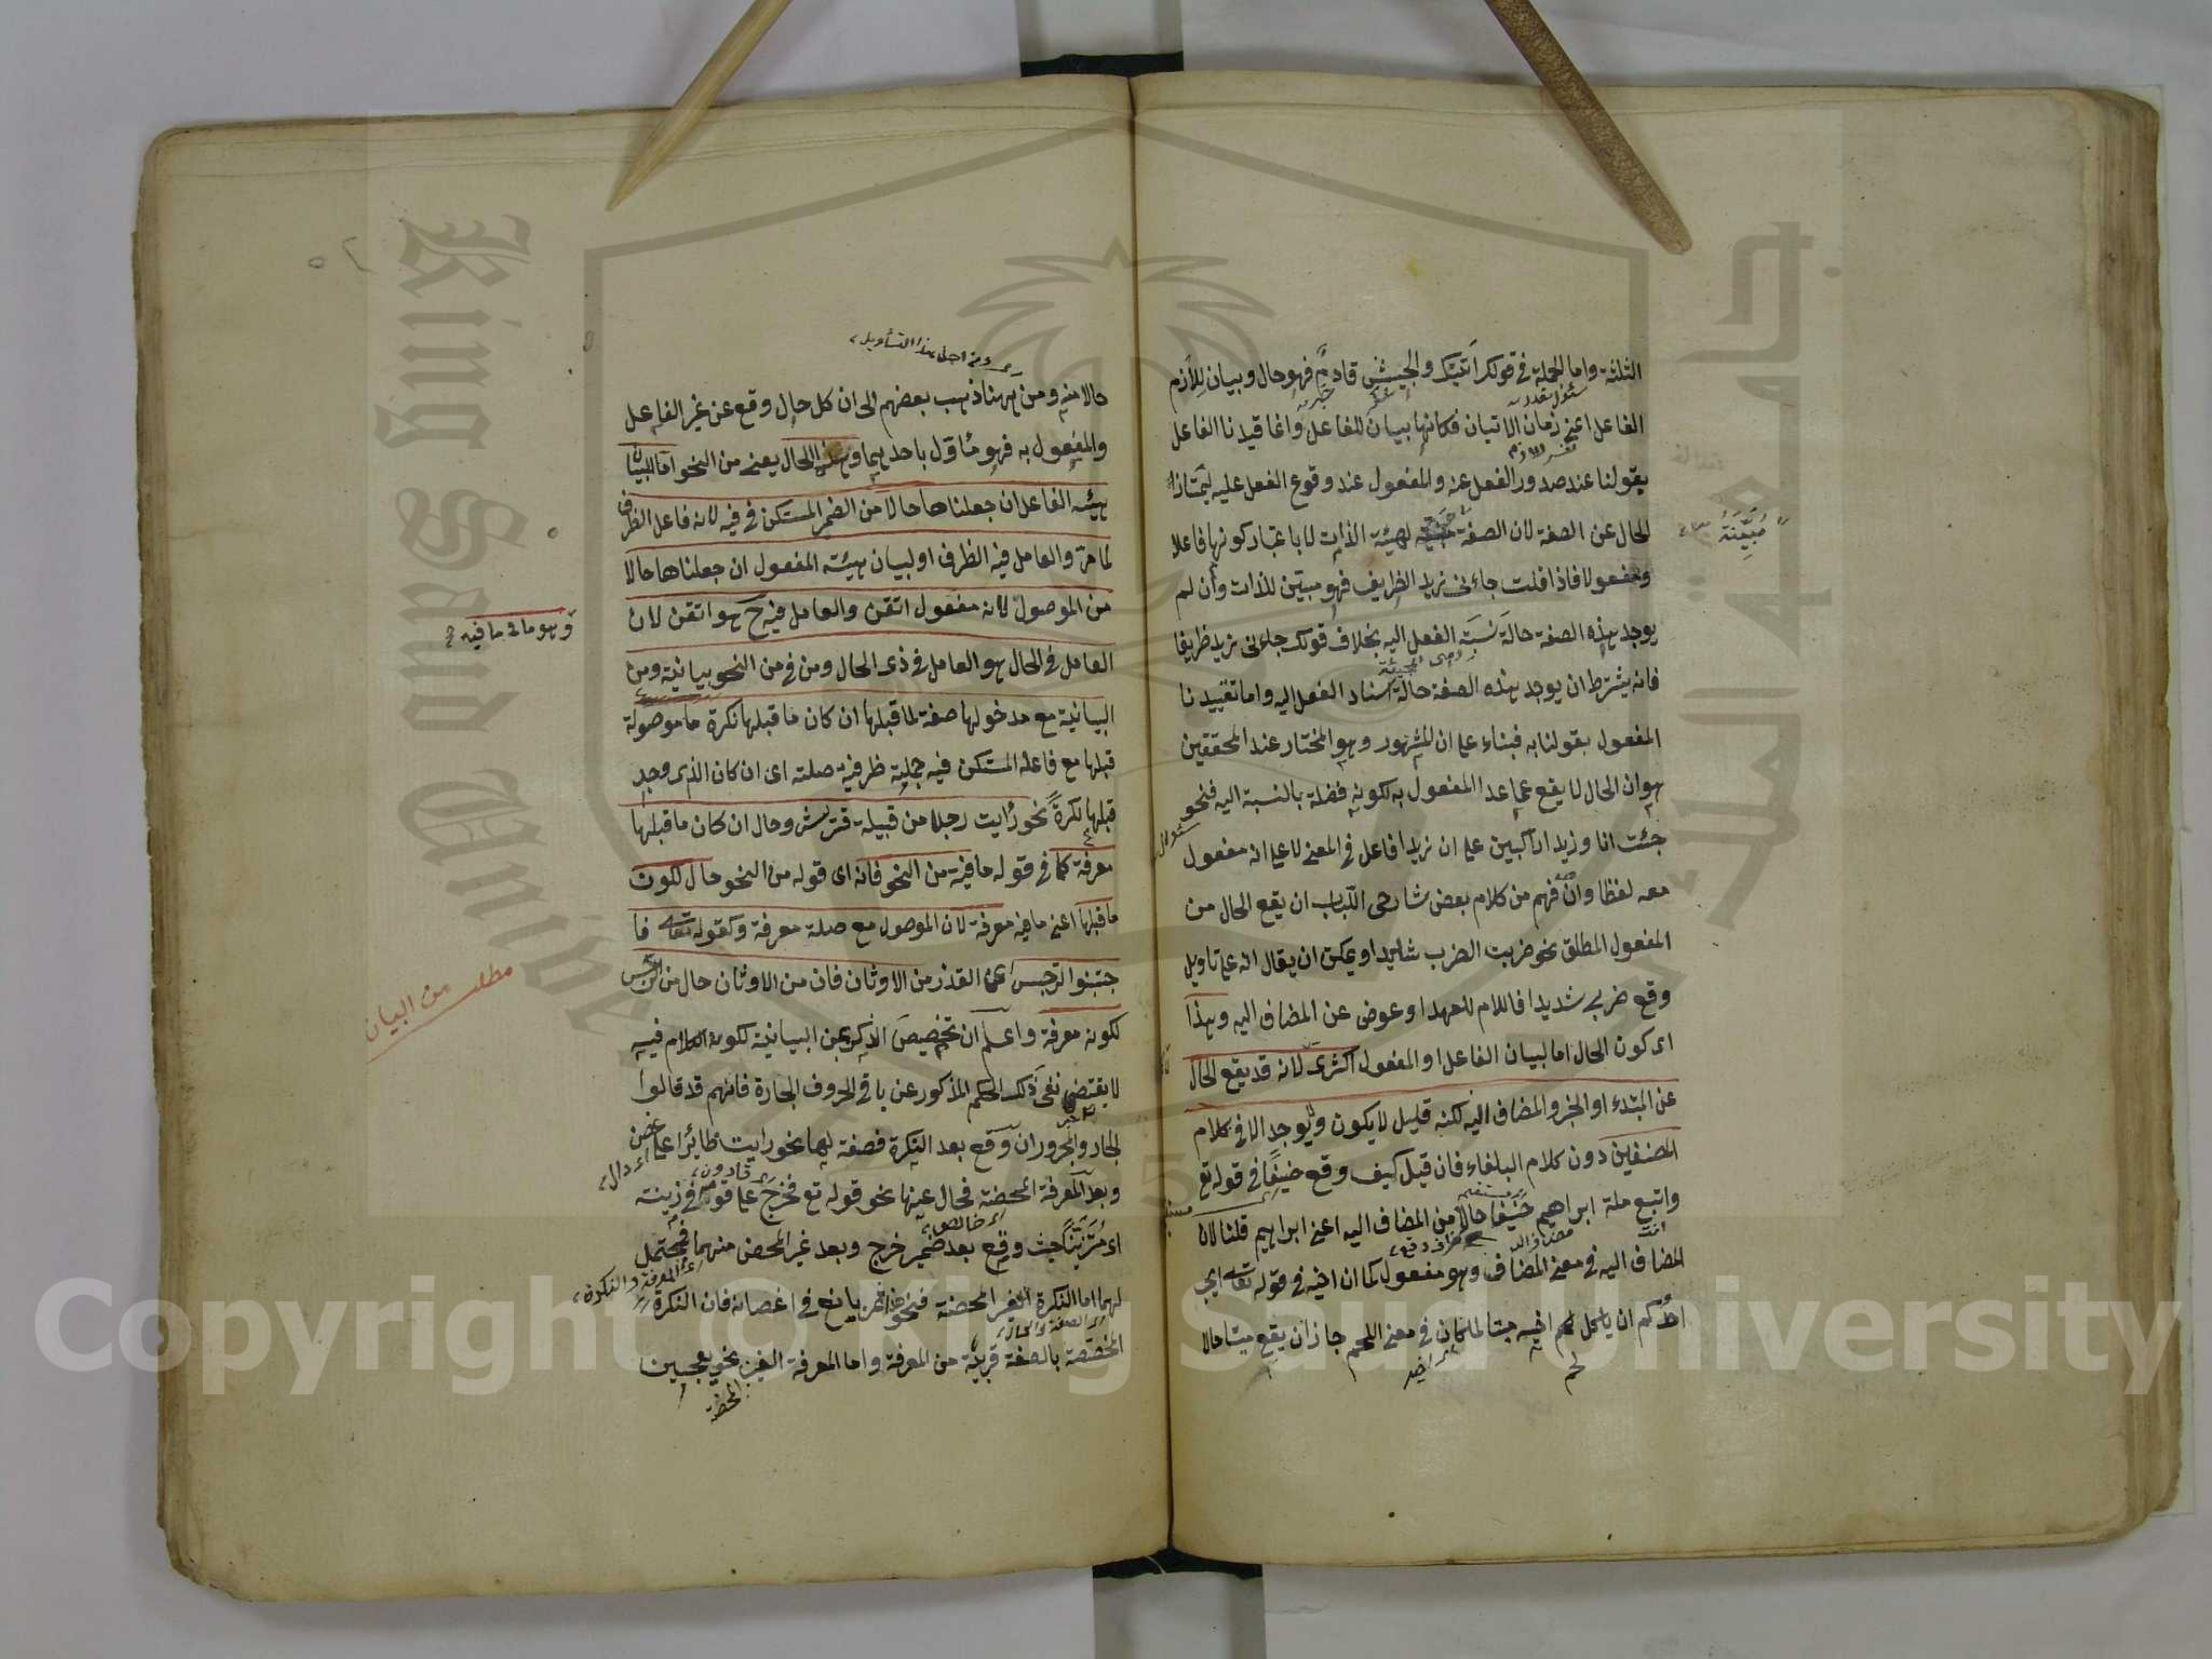 الثلثة واما الجملة في قولك اتيتك والجيش قادم فهو حال وبيان للازم
الفاعل اعني زمان الاتيان فكانها بيان للفاعل وانما قيدنا الفاعل
بقولنا عند صدور الفعل عنه والمفعول عند وقوع الفعل عليه ليمتاز
الحال عن الصفة لان الصفة لهيئة الذات لا باعتبار كونها فاعلا
ومفعولا فاذا قلت جاءني زيد الظريف فهو مبين للذات وان لم
يوجد بهذه الصفة حالة نسبة الفعل اليه بخلاف قولك جاءني زيد ظريفا
فانه يشترط ان يوجد بهذه الصفة حالة اسناد الفعل اليه واما تقييدنا
المفعول بقولنا به فبناء على ان المشهور وهو المختار عند المحققين
هو ان الحال لا يقع عما عدا المفعول به لكونه فضلة بالنسبة اليه فنحو
جئت انا وزيد راكبين على ان زيدا فاعل في المعنى لا على انه مفعول
معه لفظا وان فهم من كلام بعض شارحي اللباب ان يقع الحال من
المفعول المطلق نحو ضربت الضرب شديدا ويمكن ان يقال انه على تاويل
وقع ضربي شديدا فاللام للعهد او عوض عن المضاف اليه وهذا
اى كون الحال اما لبيان الفاعل او المفعول اكثرى لانه قد يقع الحال
عن المبتدء او الخبر والمضاف اليه لكنه قليل لا يكون ولا يوجد الا في كلام
المصنفين دون كلام البلغاء فان قيل كيف وقع حنيفا في قوله تع
واتبع ملة ابراهيم حنيفا حالا من المضاف اليه اعني ابراهيم قلنا لان
المضاف اليه في معنى المضاف وهو مفعول كما ان اخيه في قوله تعالى ايحب
احدكم ان ياكل لحم اخيه ميتا لما كان في معنى اللحم جاز ان يقع ميتا حالا
مبينة
اى ومن اجل هذا التأويل
حالا منه ومن ههنا ذهب بعضهم الى ان كل حال وقع عن غير الفاعل
والمفعول به فهو مأول باحدهما وهذه الحال يعني من النحو اما لبيان
هيئة الفاعل ان جعلناها حالا من الضمير المستكن في فيه لانه فاعل الظرف
لما مر والعامل فيه الظرف او لبيان هيئة المفعول ان جعلناها حالا
من الموصول لانه مفعول اتقن والعامل فيه ح هو اتقن لان
العامل في الحال هو العامل في ذي الحال ومن في من النحو بيانية ومن
البيانية مع مدخولها صفة لما قبلها ان كان ما قبلها نكرة ما موصولة
قبلها مع فاعله المستكن فيه جملية ظرفية صلته اى ان كان الذي وجد
قبلها نكرة نحو رأيت رجلا من قبيلة قريش وحال ان كان ما قبلها
معرفة كما في قوله ما فيه من النحو فانه اى قوله من النحو حال لكون
ما قبلها اعني ما فيه معرفة لان الموصول مع صلة معرفة وكقوله تعالى فا
جتنبوا الرجس اى القذر من الاوثان فان من الاوثان حال من الرجس
لكونه معرفة واعلم ان تخصيص الذكر بمن البيانية لكون الكلام فيه
لا يقتضي نفى ذلك الحكم المذكور عن باقي الحروف الجارة فانهم قد قالوا
الجار والمجرور ان وقع بعد النكرة فصفة لها نحو رايت طائرا على غصن
وبعد المعرفة المحضة فحال عنها نحو قوله تع فخرج على قومه في زينته
اى متزينا حيث وقع بعد ضمير خرج وبعد غير المحض منهما فمحتمل
لهما اما النكرة الغير المحضة فنحو هذا ثمر يانع في اغصانه فان النكرة
المختصة بالصفة قريبة من المعرفة واما المعرفة الغير نحو يعجبني
المحضة
وهو ما في ما فيه
مطلب من البيان